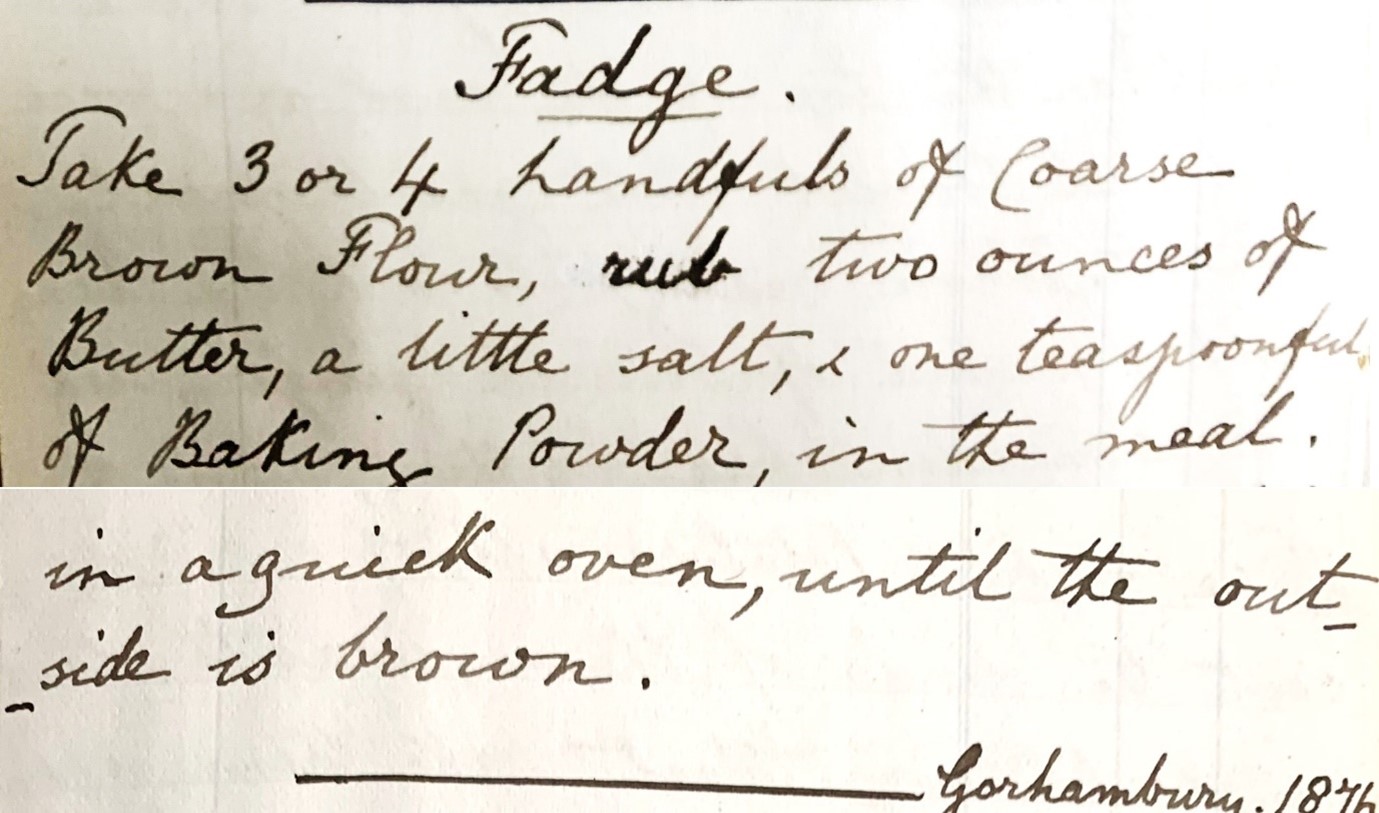 Fadge.
Take 3 or 4 handfuls of Coarse
Brown Flour, rub two ounces of
Butter, a little salt, & one teaspoonful
of Baking Powder, in the meal.
in a quick oven, until the out-
-side is brown.
Gorhambury.